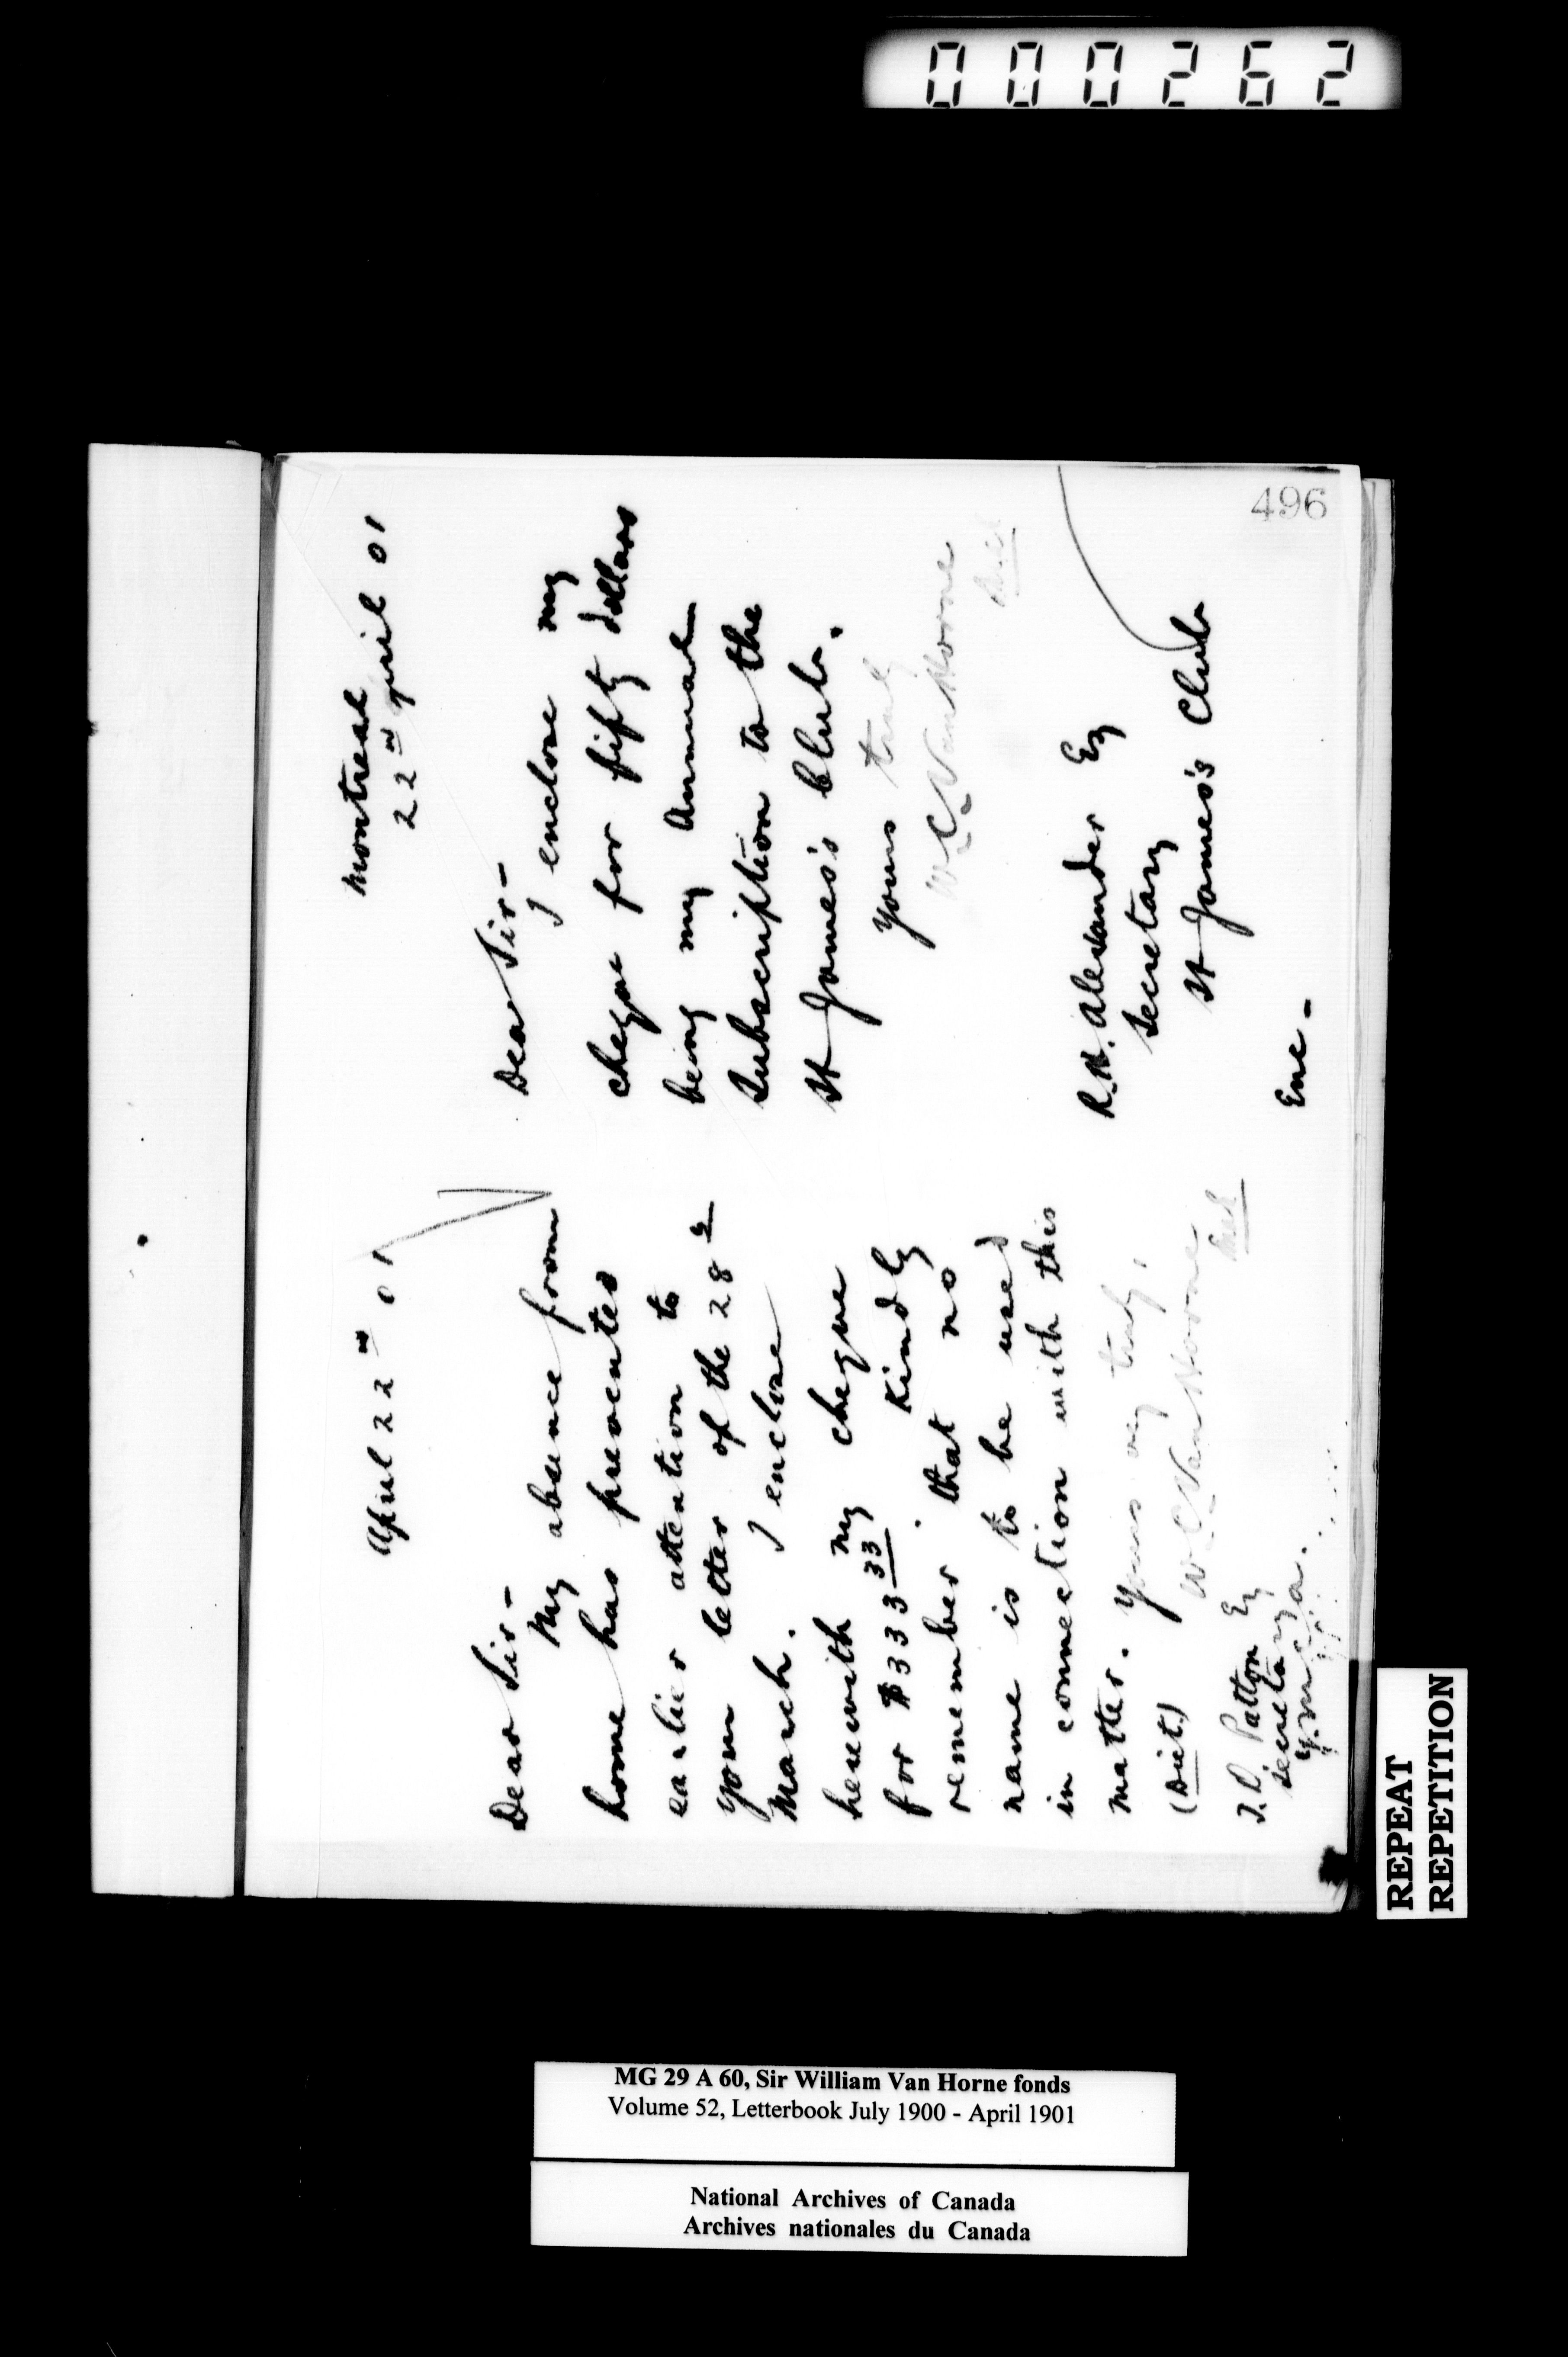 000262
496
April 22nd 01
Dear Sir -
My absence from
home has prevented
earlier attention to
your letter of the 28th
March. I enclose
herewith my cheque
for $333 33 Kindly
remember that no
name is to be used
in connection with this
matter. Yours very truly,
(Dict.) W C Van Horne
J. D Patton Eq
Secretary
Y.M.C.A.
Montreal
22nd April 01
Dear Sir -
I enclose my
cheque for fifty dollars
being my Annual
Subscription to the
St James's Club.
Yours truly
W C Van Horne
R. H. Alexander Eq
Secretary
St James's Club
Enc -
REPEAT
REPETITION
MG 29 A 60, Sir William Van Horne fonds
Volume 52, Letterbook July 1900 - April 1901
National Archives of Canada
Archives nationales du Canada